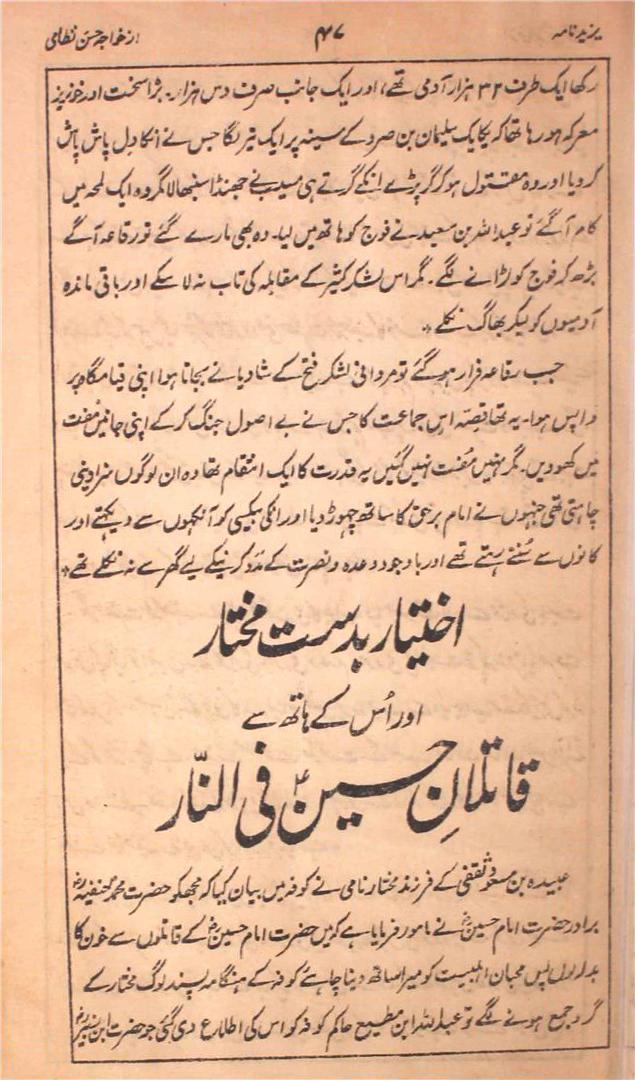 یزید نامہ
۴۷
از خواجہ حسن نظامی
رکھا ایک طرف ۳۲ ہزار آدمی تھے، اور ایک جانب صرف دس ہزار۔ بڑا سخت اور خونریز
معرکہ ہو رہا تھا کہ یکایک سلیمان بن صرد کے سینہ پر ایک تیر لگا جس نے انکا دل پاش پاش
کردیا اور وہ مقتول ہوکر گر پڑے انکے گرتے ہی مسیب نے جھنڈا سنبھالا مگر وہ ایک لمحہ میں
کام آگئے تو عبداللہ بن سعید نے فوج کو ہاتھ میں لیا۔ وہ بھی مارے گئے تو رفاعہ آگے
بڑھ کر فوج کو لڑانے لگے۔ مگر اس لشکر کثیر کے مقابلہ کی تاب نہ لاسکے اور باقی ماندہ
آدمیوں کو لیکر بھاگ نکلے ٭
جب رفاعہ فرار ہوگئے تو مروانی لشکر فتح کے شادیانے بجاتا ہوا اپنی قیامگاہ پر
واپس ہوا۔ یہ تھا قصہ اس جماعت کا جس نے بے اصول جنگ کرکے اپنی جانیں مفت
میں کھودیں۔ مگر نہیں مفت نہیں گئیں یہ قدرت کا ایک انتقام تھا وہ ان لوگوں سزا دینی
چاہتی تھی جنہوں نے امام برحق کا ساتھ چہوڑ دیا اور انکی بیکسی کو آنکہوں سے دیکہتے اور
کانوں سے سنتے رہتے تھے اور باوجود وعدہ و نصرت کے مدد کرنیکے لیے گھر سے نہ نکلے تھے ٭
اختیار بدست مختار
اور اُس کے ہاتھ سے
قاتلانِ حسینؑ فی النّار
عبیدہ بن مسعود ثقفی کے فرزند مختار نامی نے کوفہ میں بیان کیا کہ مجھکو حضرت محمد حنفیہؓ
برادر حضرت امام حسینؓ نے مامور فرمایا ہے کہ میں حضرت امام حسینؓ کے قاتلوں سے خون کا
بدلہ لوں پس محبان اہلبیت کو میرا ساتھ دینا چاہئے کوفہ کے ہنگامہ پسند لوگ مختار کے
گرد جمع ہونے لگے تو عبداللہ ابن مطیع حاکم کوفہ کو اس کی اطلاع دی گئی جو حضرت ابن زبیرؓ